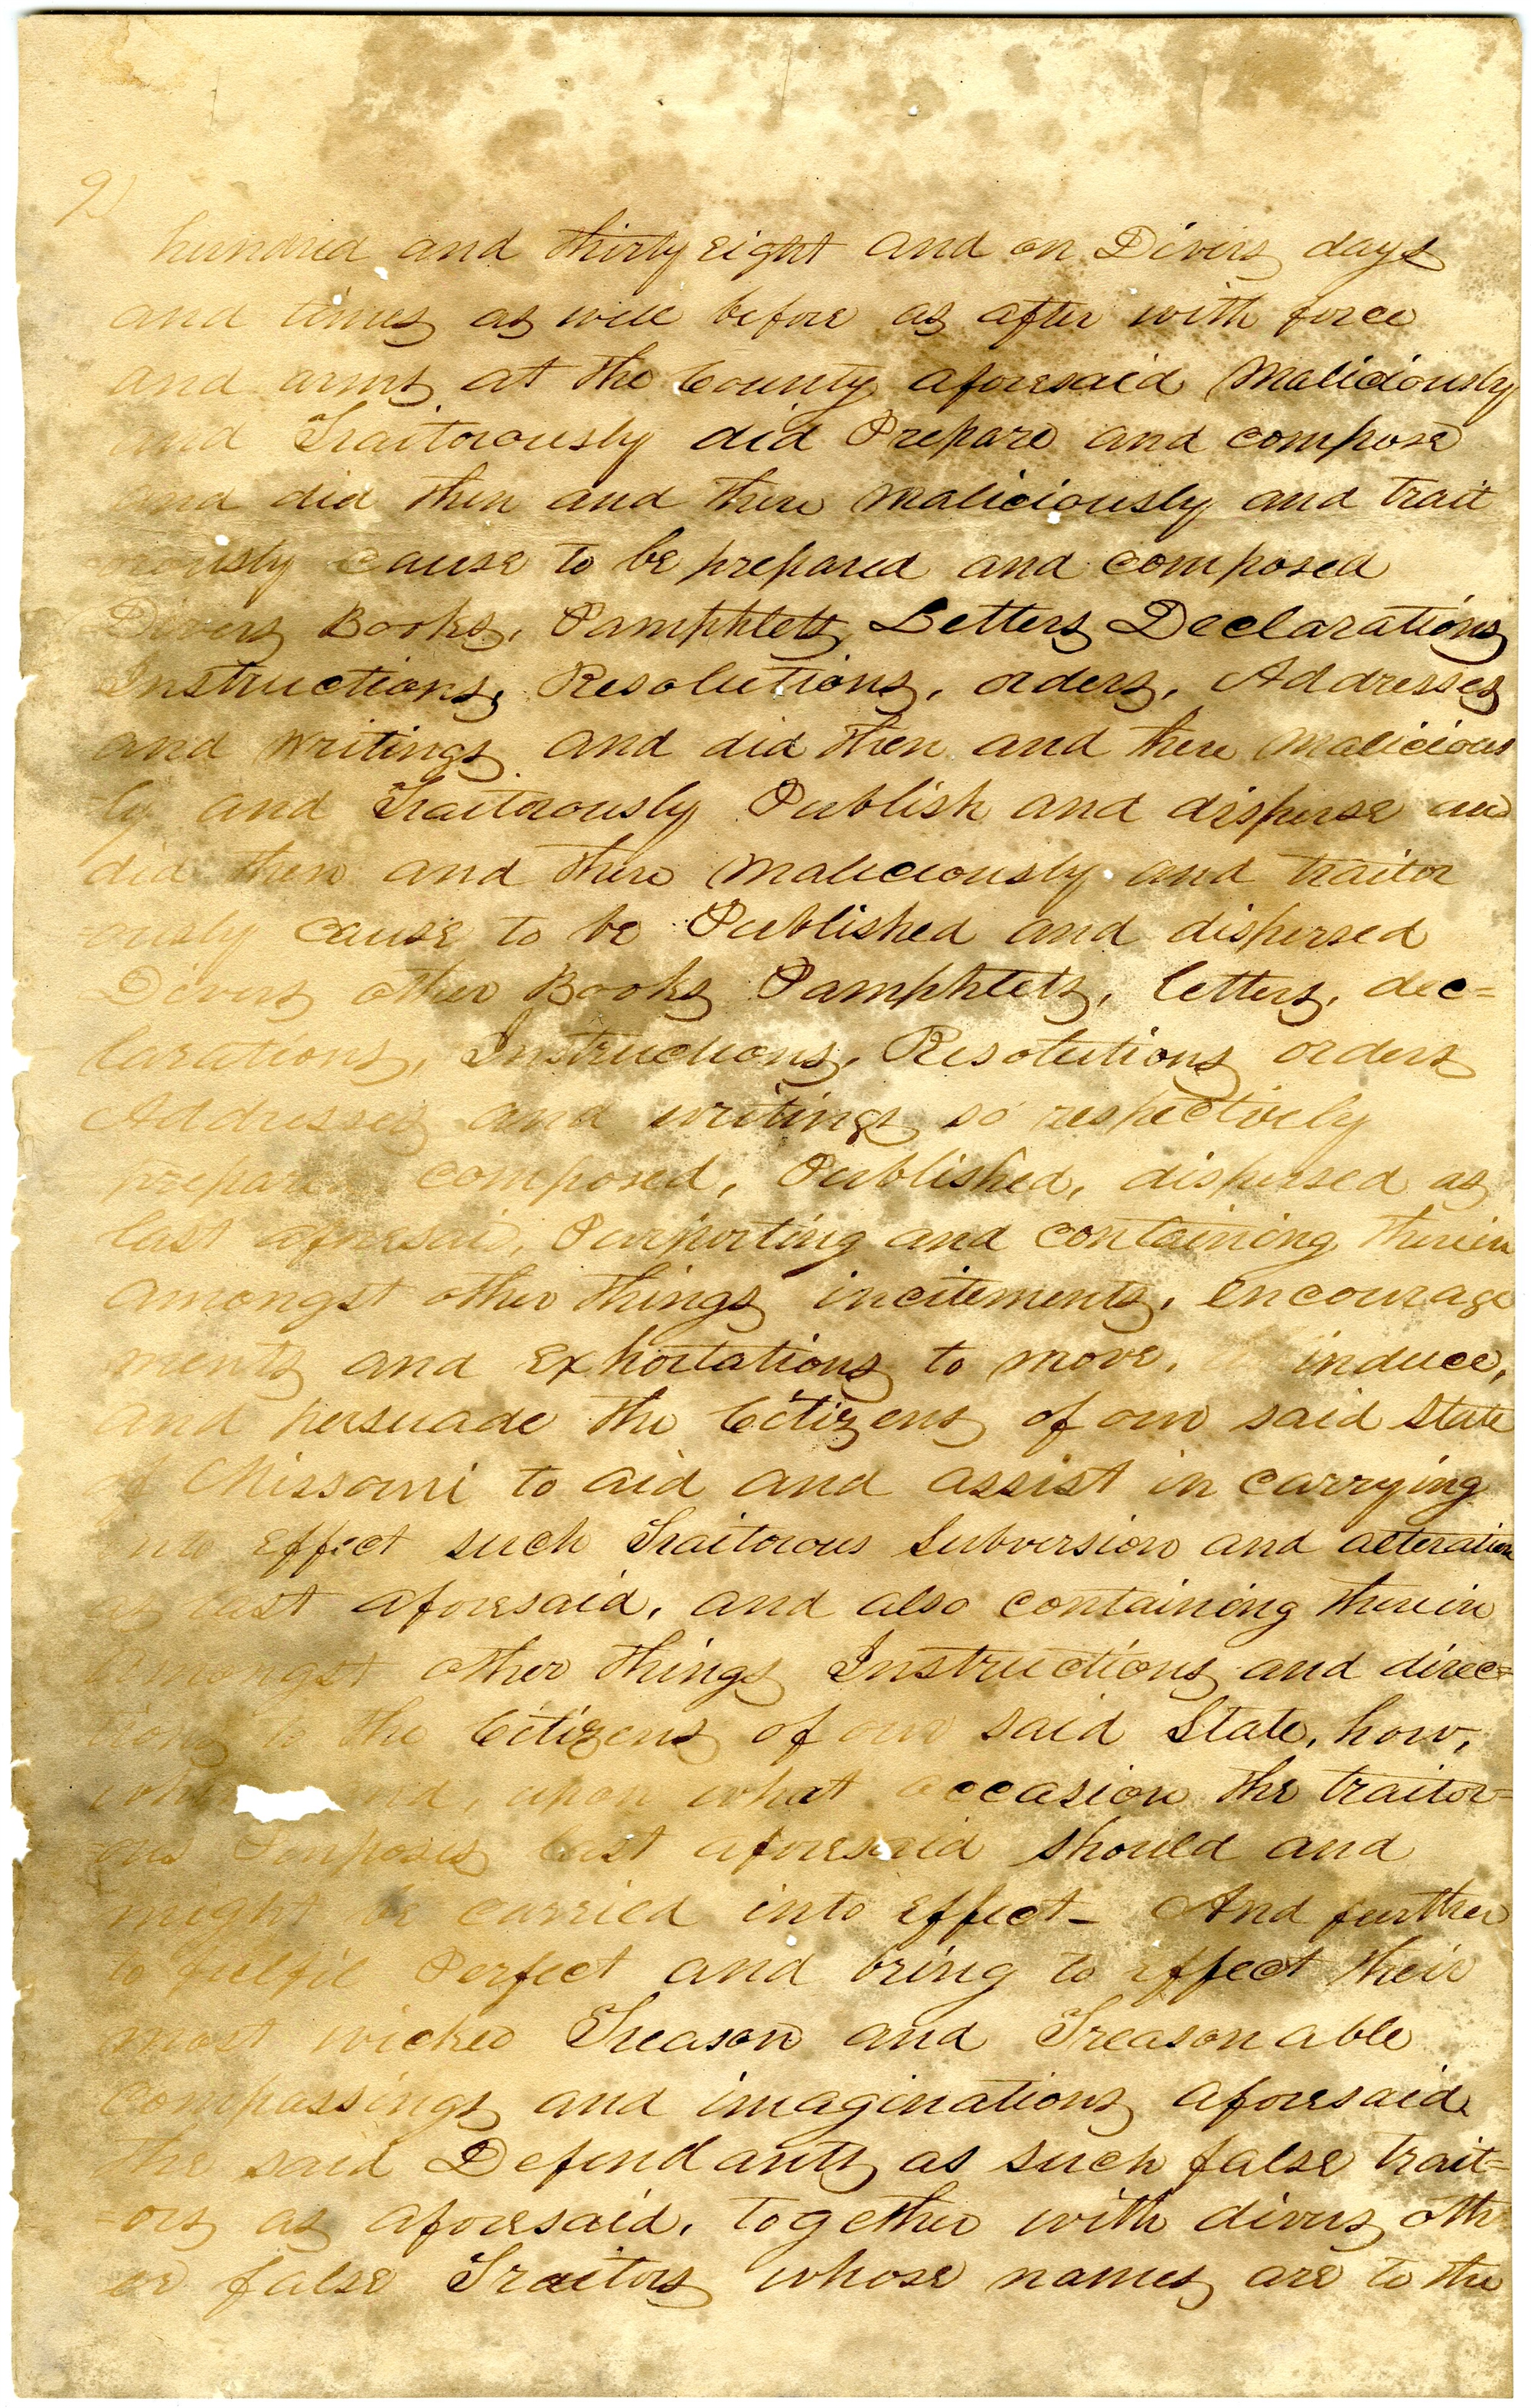 9)
hundred and thirty eight and on Divers days
and times as well before as after with force
and arms at the County aforesaid Maliciously
and Traitorously did Prepare and compose
and did then and there maliciously and trait
orously cause to be prepared and composed
Divers Books, Pamphlets, Letters Declarations
Instructions, Resolutions, orders, Addresses
and writings and did then and there malicious
ly and Traitorously Publish and disperse and
did then and there maliciously and traitor
ously cause to be Published and dispersed
Divers other Books Pamphlets, letters, dec=
larations, Instructions, Resolutions orders
Addresses and writings so respectively
prepared composed, Published, dispersed as
last aforesaid, Purporting and containing therein
amongst other things incitements, encourage
ments and exhortations to move, induce,
and persuade the Citizens of our said State
of Missouri to aid and assist in carrying
into effect such Traitorous Subversion and alteration
as last aforesaid, and also containing therein
amongst other things Instructions and direc=
tions to the Citizens of our said State, how,
upon what occasion the traitor=
ous Purposes last aforesaid should and
might be carried into effect- And further
to fulfil Perfect and bring to effect their
most wicked Treason and Treasonable
compassings and imaginations aforesaid
the said Defendants as such false trait=
-ors as aforesaid, together with divers oth
er false Traitors whose names are to the